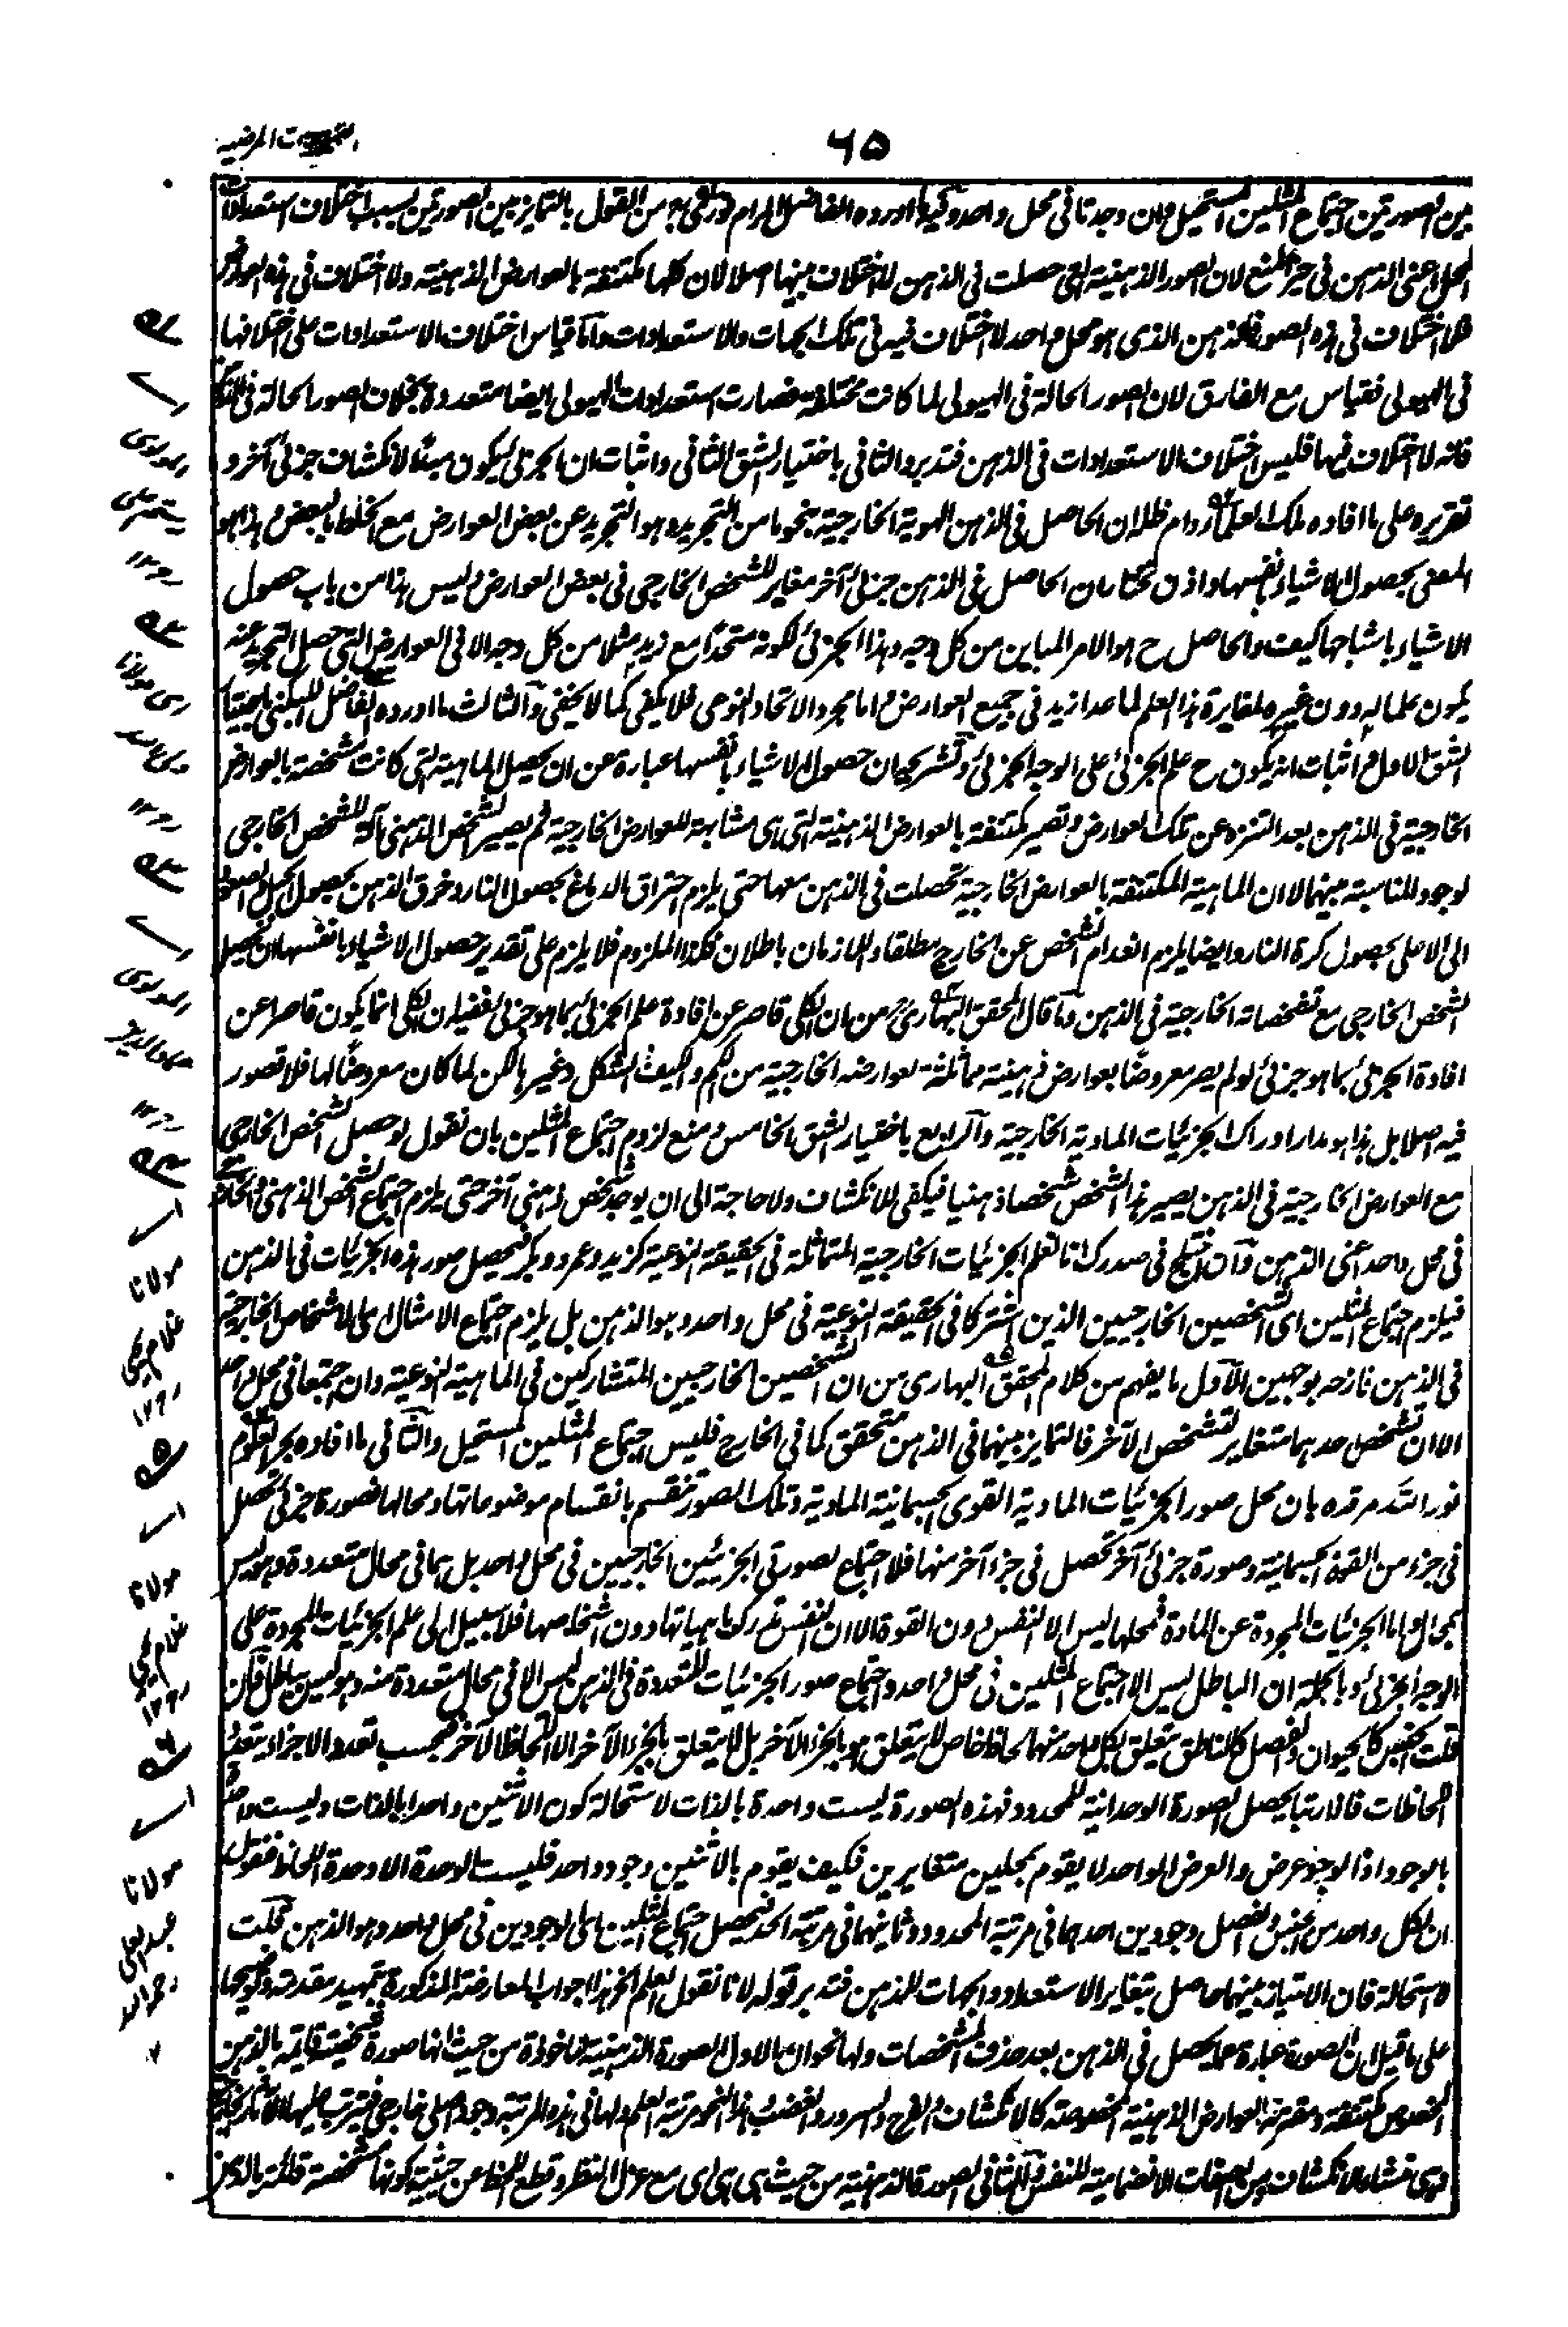 ٦٥
بين الصورتين اجتماع المثلين المستحيل وان وجدتا فى محل واحد وفيه ما اورده الفاضل من القول بالتمايز بين الصورتين بسبب اختلاف استعدادات
المحل اعنى الذهن فى حيز المنع لان الصور الذهنية التى حصلت فى الذهن لا اختلاف بينها اصلا لان كلها مكتنفة بالعوارض الذهنية ولا اختلاف فى هذه العوارض
فلا اختلاف فى هذه الصور فالذهن الذى هو محل واحد لا اختلاف فيه فى تلك الجهات والاستعدادات واما قياس اختلاف الاستعدادات على اختلافها
فى الهيولى فقياس مع الفارق لان الصور الحالة فى الهيولى لما كانت مختلفة فصارت استعدادات الهيولى ايضا متعددة بخلاف الصور الحالة فى الذهن
فانه لا اختلاف فيها فليس اختلاف الاستعدادات فى الذهن فتدبر والثانى باختيار الشق الثانى واثبات ان الجزئى ليكون مبدءًا لانكشاف جزئى آخر و
تقريره على ما افاده ملك العلماء دام ظله ان الحاصل فى الذهن الهوية الخارجية بنحو ما من التجريد وهو التجريد عن بعض العوارض مع الخلط بالبعض وهذا هو
المعنى بحصول الاشياء بانفسها واذن نختار ان الحاصل فى الذهن جزئى آخر مغاير للشخص الخارجى فى بعض العوارض وليس هذا من باب حصول
الاشياء باشباحها كيف والحاصل ح هو الامر المباين من كل وجه وهذا الجزئى لكونه متحدًا مع زيد مثلا من كل وجه الا فى العوارض التى حصل التجريد عنه
يكون علما له دون غيره لمغايرة هذا العلم لما عدا زيد فى جميع العوارض واما مجرد الاتحاد النوعى فلا يكفى كما لا يخفى والثالث ما اورده الفاضل اللبكنى باختيار
الشق الاول واثبات انه يكون ح علم الجزئى على الوجه الجزئى وتشريحه ان حصول الاشياء بانفسها عبارة عن ان يحصل الماهية التى كانت متشخصة بالعوارض
الخارجية فى الذهن بعد التنزه عن تلك العوارض وتصير مكتنفة بالعوارض الذهنية التى هى مشابهة للعوارض الخارجية ثم يصير الشخص الذهنى مرآة للشخص الخارجى
لوجود المناسبة بينهما لا ان الماهية المكتنفة بالعوارض الخارجية تحصلت فى الذهن معها حتى يلزم احتراق الدماغ بحصول النار وخرق الذهن بحصول الجبل والصعود
الى الاعلى بحصول كرة النار وايضا يلزم انعدام الشخص عن الخارج مطلقا واللازمان باطلان فكذا الملزوم فلا يلزم على تقدير حصول الاشياء بانفسها ان يحصل
الشخص الخارجى مع تشخصاته الخارجية فى الذهن وما قال المحقق البهارى من ان الكلى قاصر عن افادة علم الجزئى بما هو جزئى ففيه ان الكلى انما يكون قاصرا عن
افادة الجزئى بما هو جزئى لو لم يصر معروضًا بعوارض ذهنية مماثلة لعوارضه الخارجية من الكم والكيف والشكل وغيرها لكن لما كان معروضًا لها فلا قصور
فيه اصلا بل هذا هو مدار ادراك الجزئيات المادية الخارجية والرابع باختيار الشق الخامس ومنع لزوم اجتماع المثلين بان نقول لو حصل الشخص الخارجى
مع العوارض الخارجية فى الذهن يصير هذا الشخص شخصا ذهنيا فيكفى للانكشاف ولا حاجة الى ان يوجد شخص ذهنى آخر حتى يلزم اجتماع الشخص الذهنى والخارجى
فى محل واحد اعنى الذهن وان اختلج فى صدرك انا نعلم الجزئيات الخارجية المتماثلة فى الحقيقة النوعية كزيد وعمرو وبكر فتحصل صور هذه الجزئيات فى الذهن
فيلزم اجتماع المثلين اى الشخصين الخارجيين الذين اشتركا فى الحقيقة النوعية فى محل واحد وهو الذهن بل يلزم اجتماع الامثال اى الاشخاص الخارجية
فى الذهن فازحه بوجهين الاول ما يفهم من كلام المحقق البهارى من ان الشخصين الخارجيين المتشاركين فى الماهية النوعية وان اجتمعا فى محل واحد
الا ان تشخص احدهما متغاير لتشخص الآخر فالتمايز بينهما فى الذهن متحقق كما فى الخارج فليس اجتماع المثلين المستحيل والثانى ما افاده بحر العلوم
نور الله مرقده بان محل صور الجزئيات المادية القوى الجسمانية المادية وتلك الصور تنقسم بانقسام موضوعاتها ومحالها فصورة جزئى تحصل
فى جزء من القوة الجسمانية وصورة جزئى آخر تحصل فى جزء آخر منها فلا اجتماع لصورتى الجزئيين الخارجيين فى محل واحد بل هما فى محال متعددة وهو ليس
بمحال واما الجزئيات المجردة عن المادة فمحلها ليس الا النفس دون القوة الا ان النفس تدركها بماهياتها دون اشخاصها فلا سبيل الى علم الجزئيات المجردة على
الوجه الجزئى وبالجملة ان الباطل ليس الا اجتماع المثلين فى محل واحد واجتماع صور الجزئيات المتعددة فى الذهن ليس الا فى محال متعددة منه وهو ليس بباطل فان
قلت الجنس كالحيوان والفصل كالناطق يتعلق بكل واحد منهما لحاظ خاص لا يتعلق هو بالجزء الآخر بل لا يتعلق بالجزء الآخر الا اللحاظ الآخر فبحسب تعدد الاجزاء يتعدد
اللحاظات فالارتباط يحصل الصورة الوحدانية للمحدود فهذه الصورة ليست واحدة بالذات لاستحالة كون الاثنين واحدا بالذات وليست واحدة
بالوجود اذ الوجود عرض والعرض الواحد لا يقوم بمحلين متغايرين فكيف يقوم بالاثنين وجود واحد فليست الوحدة الا وحدة اللحاظ فنقول
ان لكل واحد من الجنس والفصل وجودين احدهما فى مرتبة المحدود وثانيهما فى مرتبة الحد فيحصل اجتماع المثلين اى الوجودين فى محل واحد وهو الذهن قلت
لا استحالة فان الامتياز بينهما حاصل بتغاير الاستعداد والجهات للذهن فتدبر قوله لانا نقول العلم الخ هذا جواب المعارضة المذكورة بتمهيد مقدمة وتوضيحها
على ما قيل ان الصورة عبارة عما يحصل فى الذهن بعد حذف المشخصات ولها نحوان الاول الصورة الذهنية ماخوذة من حيث انها صورة شخصية قائمة بالذهن
المخصوص مكتنفة ومقترنة بالعوارض الذهنية المخصوصة كالانكشاف والفرح والسرور والغضب وهذا النحو مرتبة العلم ولها فى هذه المرتبة وجود اصلى خارجى فيترتب عليها الآثار الخارجية
وهى منشاء الانكشاف ومن الصفات الانضمامية للنفس والثانى الصورة الذهنية من حيث هى هى اى مع عزل النظر وقطع اللحاظ عن حيثية كونها مشخصة قائمة بالذهن
مولانا
غلام يحيى
مولانا
غلام يحيى
مولانا
عبد العلى
رحمه الله